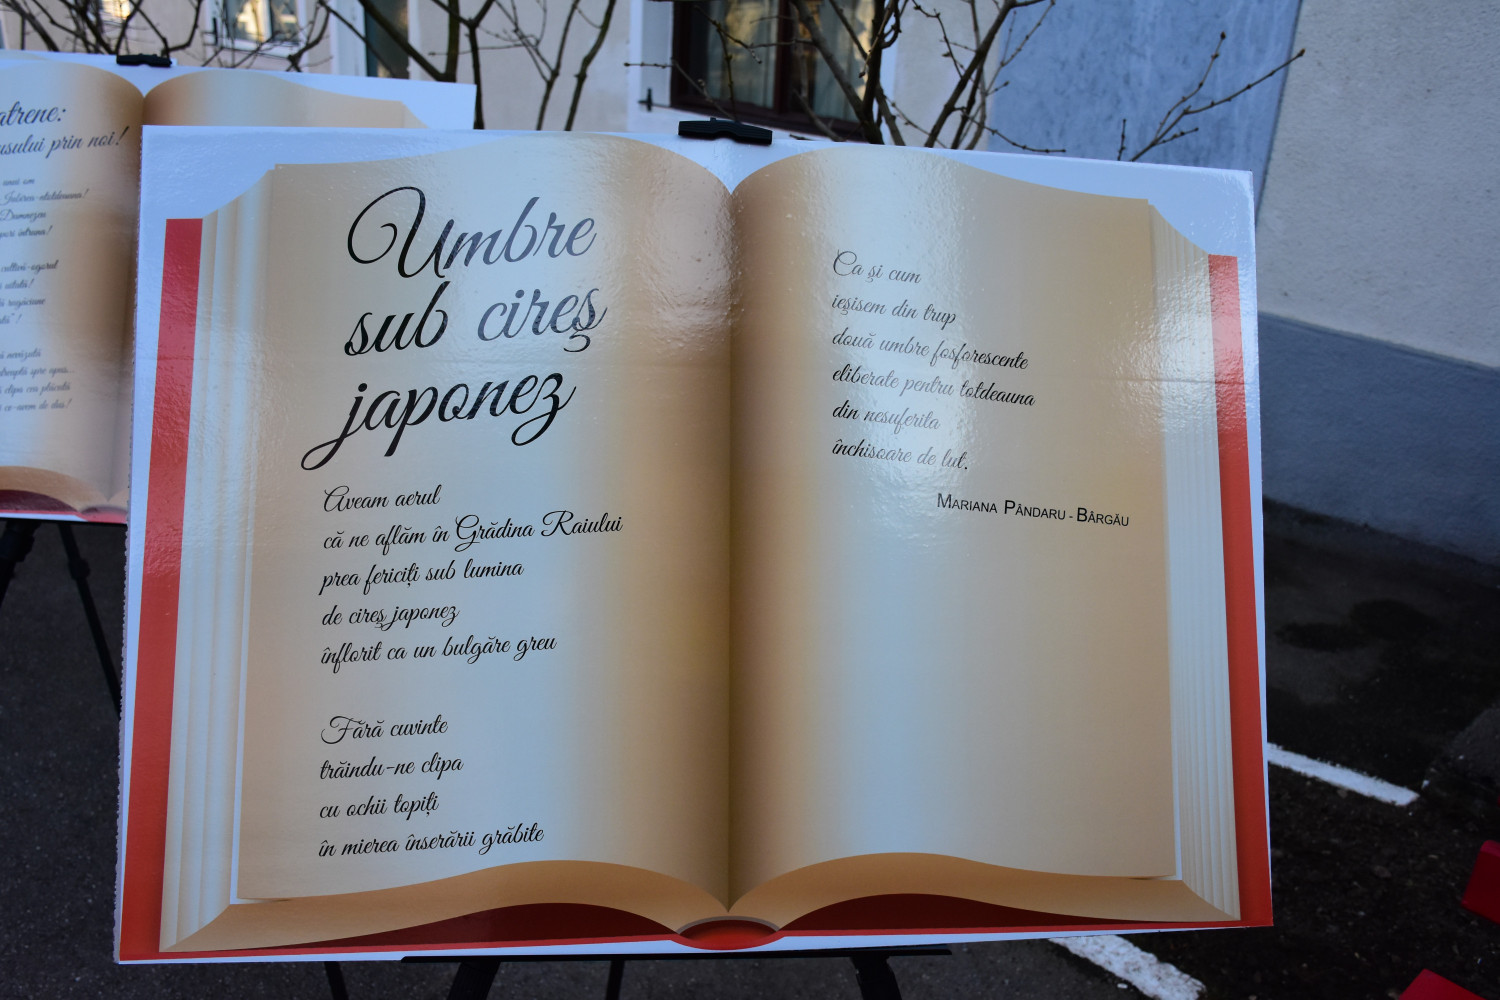 atrene:
usului prin noi!
Umbre
sub cireş
japonez
Aveam aerul
că ne aflăm în Grădina Raiului
prea fericiţi sub lumina
de cireş japonez
înflorit ca un bulgăre greu
Fără cuvinte
trăindu-ne clipa
cu ochii topiţi
în mierea înserării grăbite
Ca şi cum
ieşisem din trup
două umbre fosforescente
eliberate pentru totdeauna
din nesuferita
închisoare de lut.
Mariana Pândaru - Bârgău